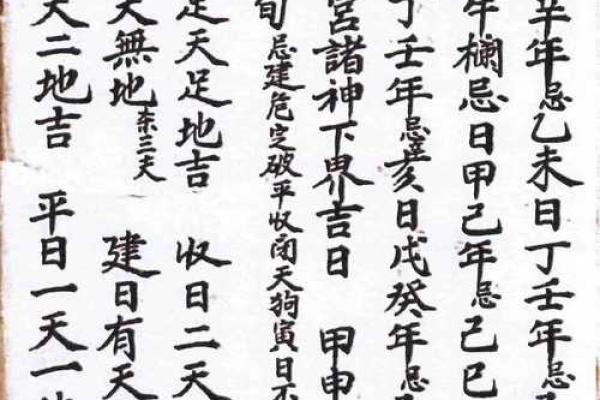 辛年忌乙未日丁壬年忌
牛欄忌日甲己年忌己巳
丁壬年忌辛亥日戊癸年忌
宮諸神下界吉日 甲申
旬忌建危定破平收闭天狗寅日不
足天足地吉 收日二天
天無地东三夫 建日有天
天二地吉 平日一天一